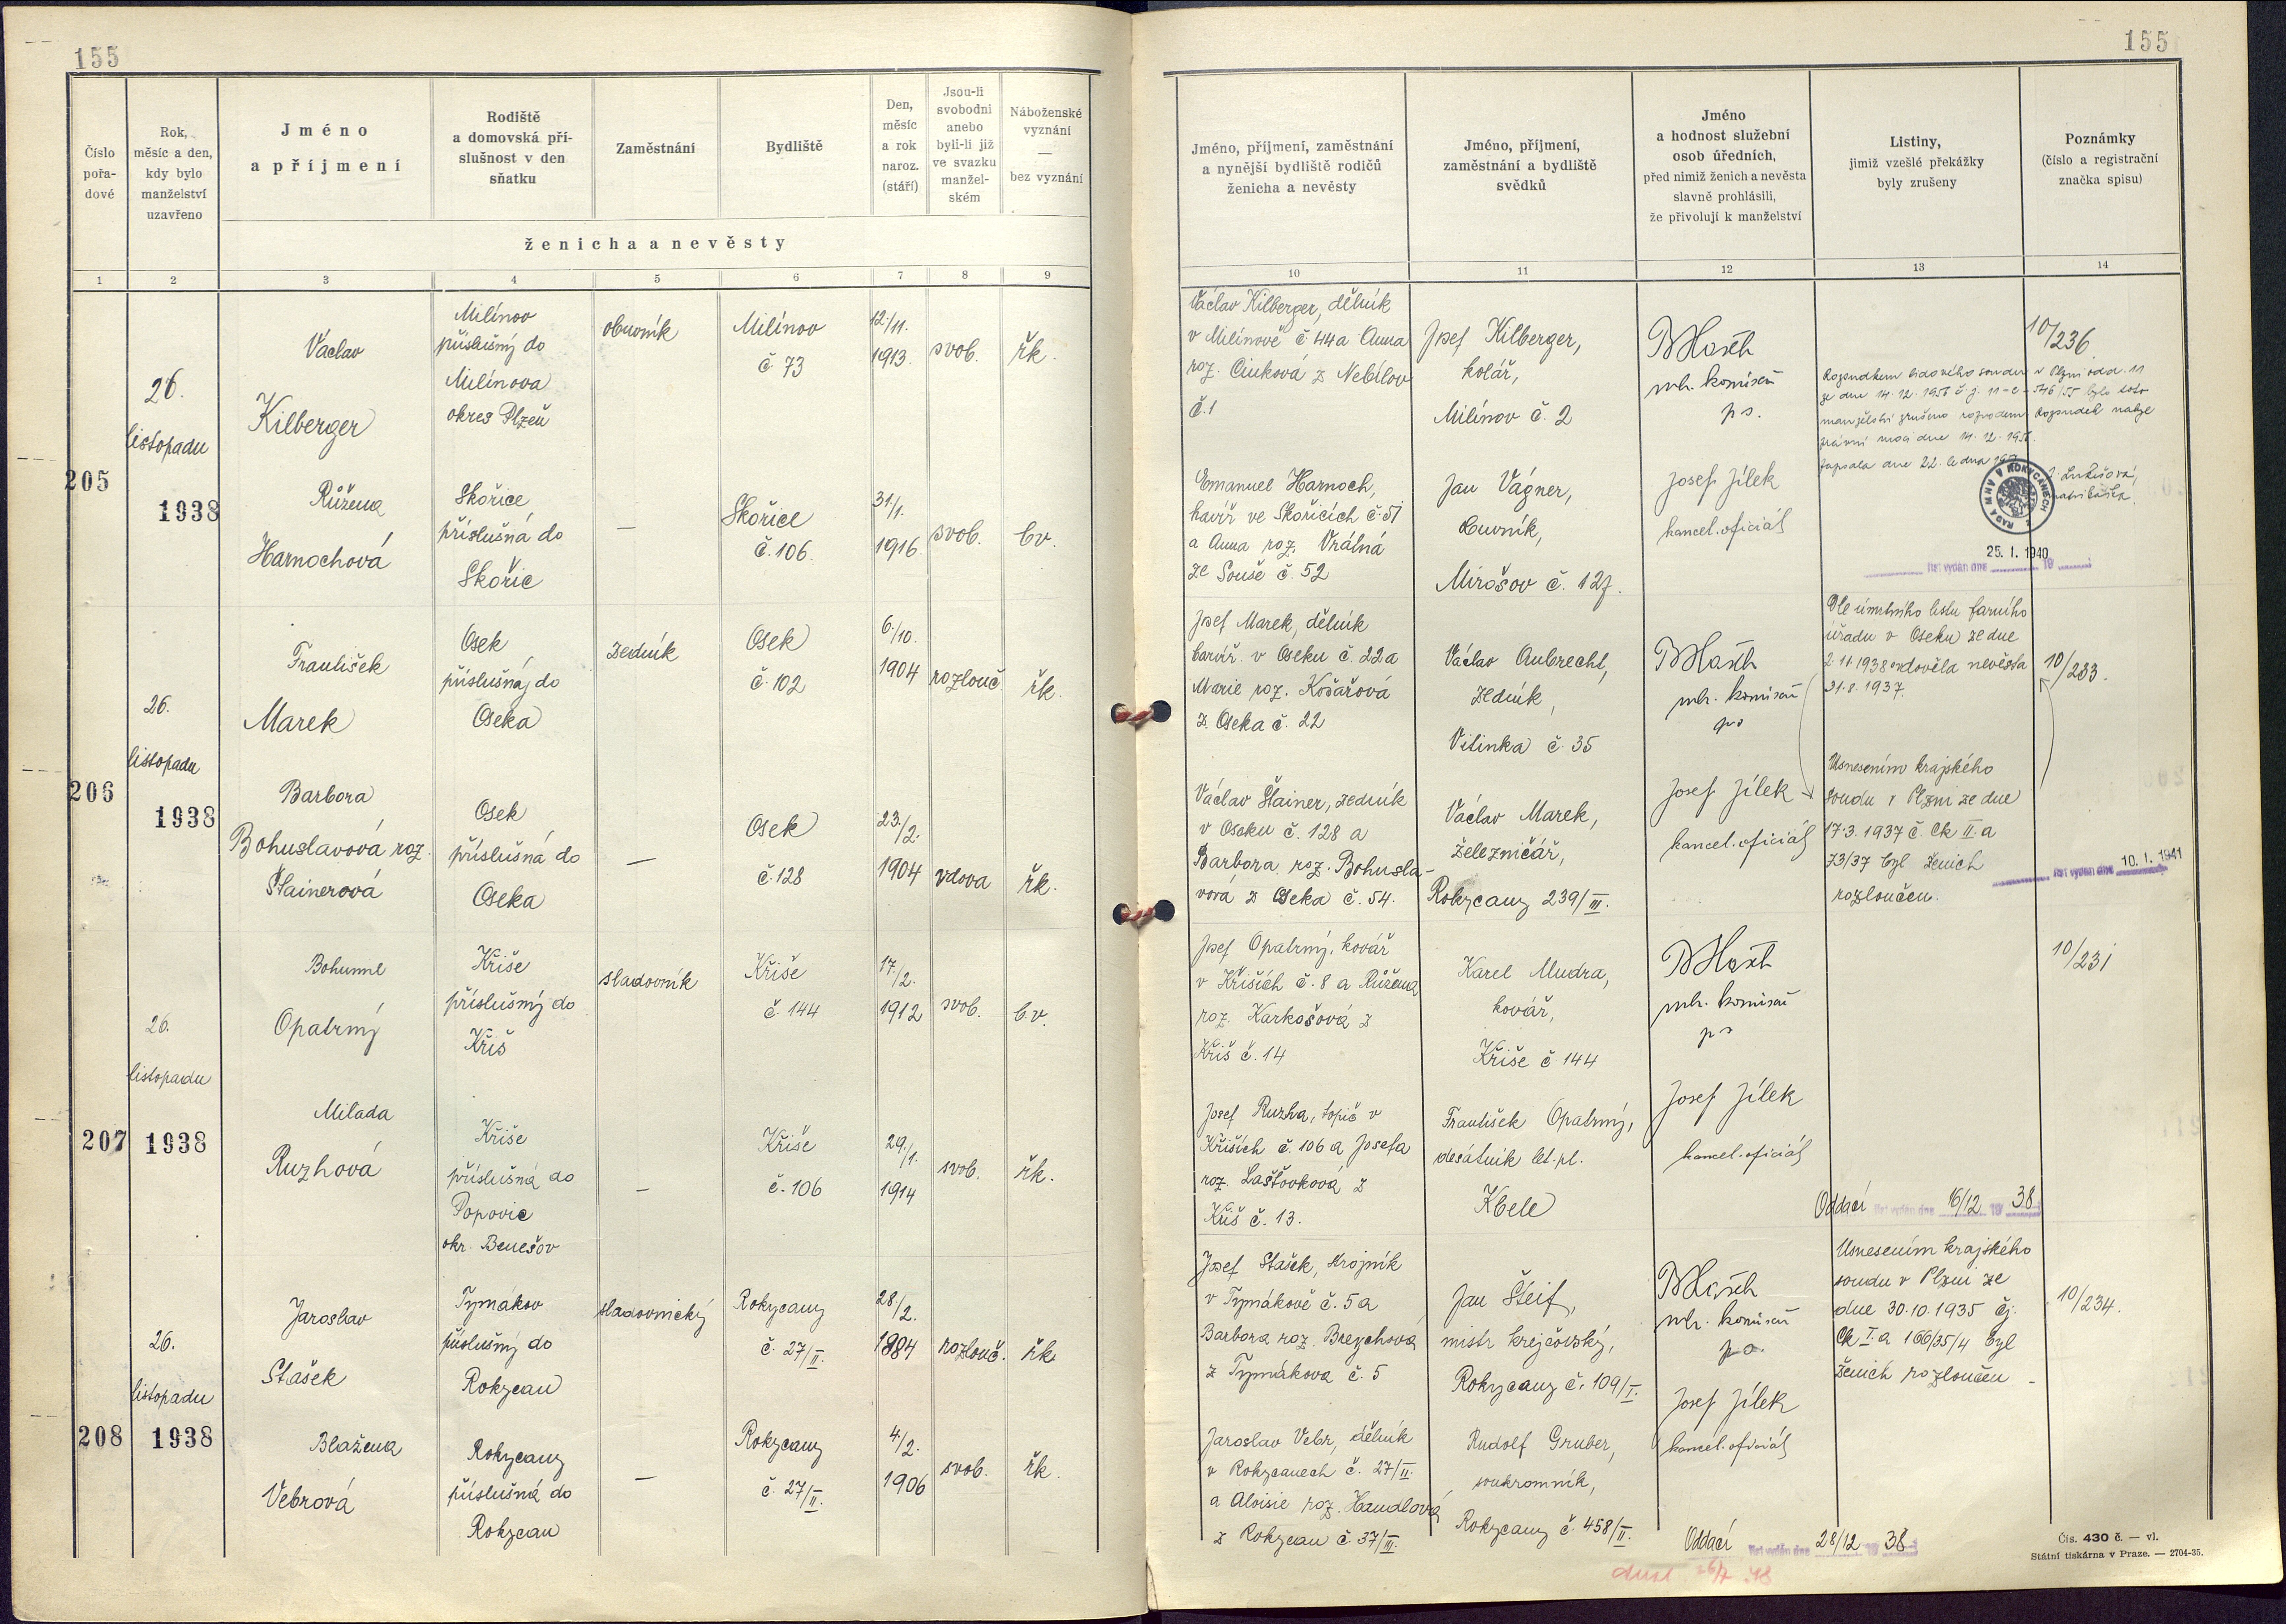 155
155
Číslo
pořa-
dové
Rok,
měsíc a den,
kdy bylo
manželství
uzavřeno
Jméno
a příjmení
Rodiště
a domovská pří-
slušnost v den
sňatku
Zaměstnání
Bydliště
Den,
měsíc
a rok
naroz.
(stáří)
Jsou-li
svobodni
anebo
byli-li již
ve svazku
manžel-
ském
Náboženské
vyznání
—
bez vyznání
ženicha a nevěsty
Jméno, příjmení, zaměstnání
a nynější bydliště rodičů
ženicha a nevěsty
Jméno, příjmení,
zaměstnání a bydliště
svědků
Jméno
a hodnost služební
osob úředních,
před nimiž ženich a nevěsta
slavně prohlásili,
že přivolují k manželství
Listiny,
jimiž vzešlé překážky
byly zrušeny
Poznámky
(číslo a registrační
značka spisu)
1 2 3 4 5 6 7 8 9 10 11 12 13 14
205
26.
listopadu
1938
Václav
Kilberger
Milínov
příslušný do
Milínova
okres Plzeň
obuvník
Milínov
č 73
12./11.
1913.
svob.
řk.
Václav Kilberger, dělník
v Milínově č 44 a Anna
roz. Cinková z Nebílov
č.1
Josef Kilberger,
kolář,
Milínov č. 2
vlr. komisař
ps.
10/236
Rozsudkem lidového soudu v Plzni odd. 11
manželství zrušeno rozvodem. Rozsudek nabyl
právní moci dne
RADA MNV V ROKYCANECH
Růžena
Harnochová
Skořice
příslušná do
Skořic
—
Skořice
č. 106.
31/1.
1916.
svob.
bv.
Emanuel Harnoch,
havíř ve Skořicích č. 51
a Anna roz. Vrátná
ze Souše č. 52
Jan Vágner,
obuvník,
Mirošov č. 127.
Josef Jílek
kancel. oficiál
25. I. 1940
list vydán dne 19
206
26.
listopadu
1938
František
Marek
Osek
příslušný do
Oseka
zedník
Osek
č. 102
6./10.
1904
rozlouč.
řk.
Josef Marek, dělník
v Oseku č. 22 a
Marie roz. Košařová
z Oseka č. 22
Václav Aubrecht,
zedník,
Vitinka č. 35
vlr. komisař
ps
Dle úmrtního listu farního
úřadu v Oseku ze dne
2.11.1938 ovdověla nevěsta
21.8.1937.
10/233.
Barbora
Bohuslavová roz.
Štainerová
Osek
příslušná do
Oseka
—
Osek
č. 128
23./2.
1904
vdova
řk.
Václav Štainer, zedník
v Oseku č. 128 a
Barbora roz. Bohusla-
vová z Oseka č. 54.
Václav Marek,
železničář,
Rokycany 239/III.
Josef Jílek
kancel. oficiál
Usnesením krajského
soudu v Plzni ze dne
17.3.1937 č. Ck II.a
73/37 byl ženich
rozloučen.
list vydán dne 10. I. 1941
207
26.
listopadu
1938
Bohumil
Opatrný
Kříše
příslušný do
Kříš
sladovník
Kříše
č. 144
17./2.
1912
svob.
b.v.
Josef Opatrný, kovář
v Křiších č. 8 a Růžena
roz. Karkošová z
Kříš č. 14
Karel Mudra,
kovář,
Kříše č 144
vlr. komisař
ps
10/231
Milada
Ruzhová
Kříše
příslušná do
Popovic
okr. Benešov
—
Kříše
č. 106
29./1.
1914
svob.
řk.
Josef Ruzha, topič v
Křiších č. 106 a Josefa
roz. Laštovková z
Kříš č. 13.
František Opatrný,
desátník let. pl.
Kbele
Josef Jílek
kancel. oficiál
Oddací list vydán dne 16/12 19 38
208
26.
listopadu
1938
Jaroslav
Stašek
Tymákov
příslušný do
Rokycan
sladovnický
Rokycany
č. 27/II.
28/2.
1904
rozlouč.
řk.
Josef Stašek, strojník
v Tymákově č. 5 a
Barbora roz. Brezchová
z Tymákova č. 5
Jan Šteif,
mistr krejčovský,
Rokycany č. 109/I.
vlr. komisař
ps.
Usnesením krajského
soudu v Plzni ze
dne 30.10.1935 čj.
Ck I.a 166/35/4 byl
ženich rozloučen
10/234.
Blažena
Vebrová
Rokycany
příslušná do
Rokycan
—
Rokycany
č. 27/II.
4./2.
1906
svob.
řk.
Jaroslav Vebr, dělník
v Rokycanech č. 27/II.
a Aloisie roz. Handlová
z Rokycan č. 37/III.
Rudolf Gruber,
soukromník,
Rokycany č. 458/II.
Josef Jílek
kancel. oficiál
Oddací list vydán dne 28/12 19 38
Čís. 430 č. — vl.
Státní tiskárna v Praze. — 2704-35.